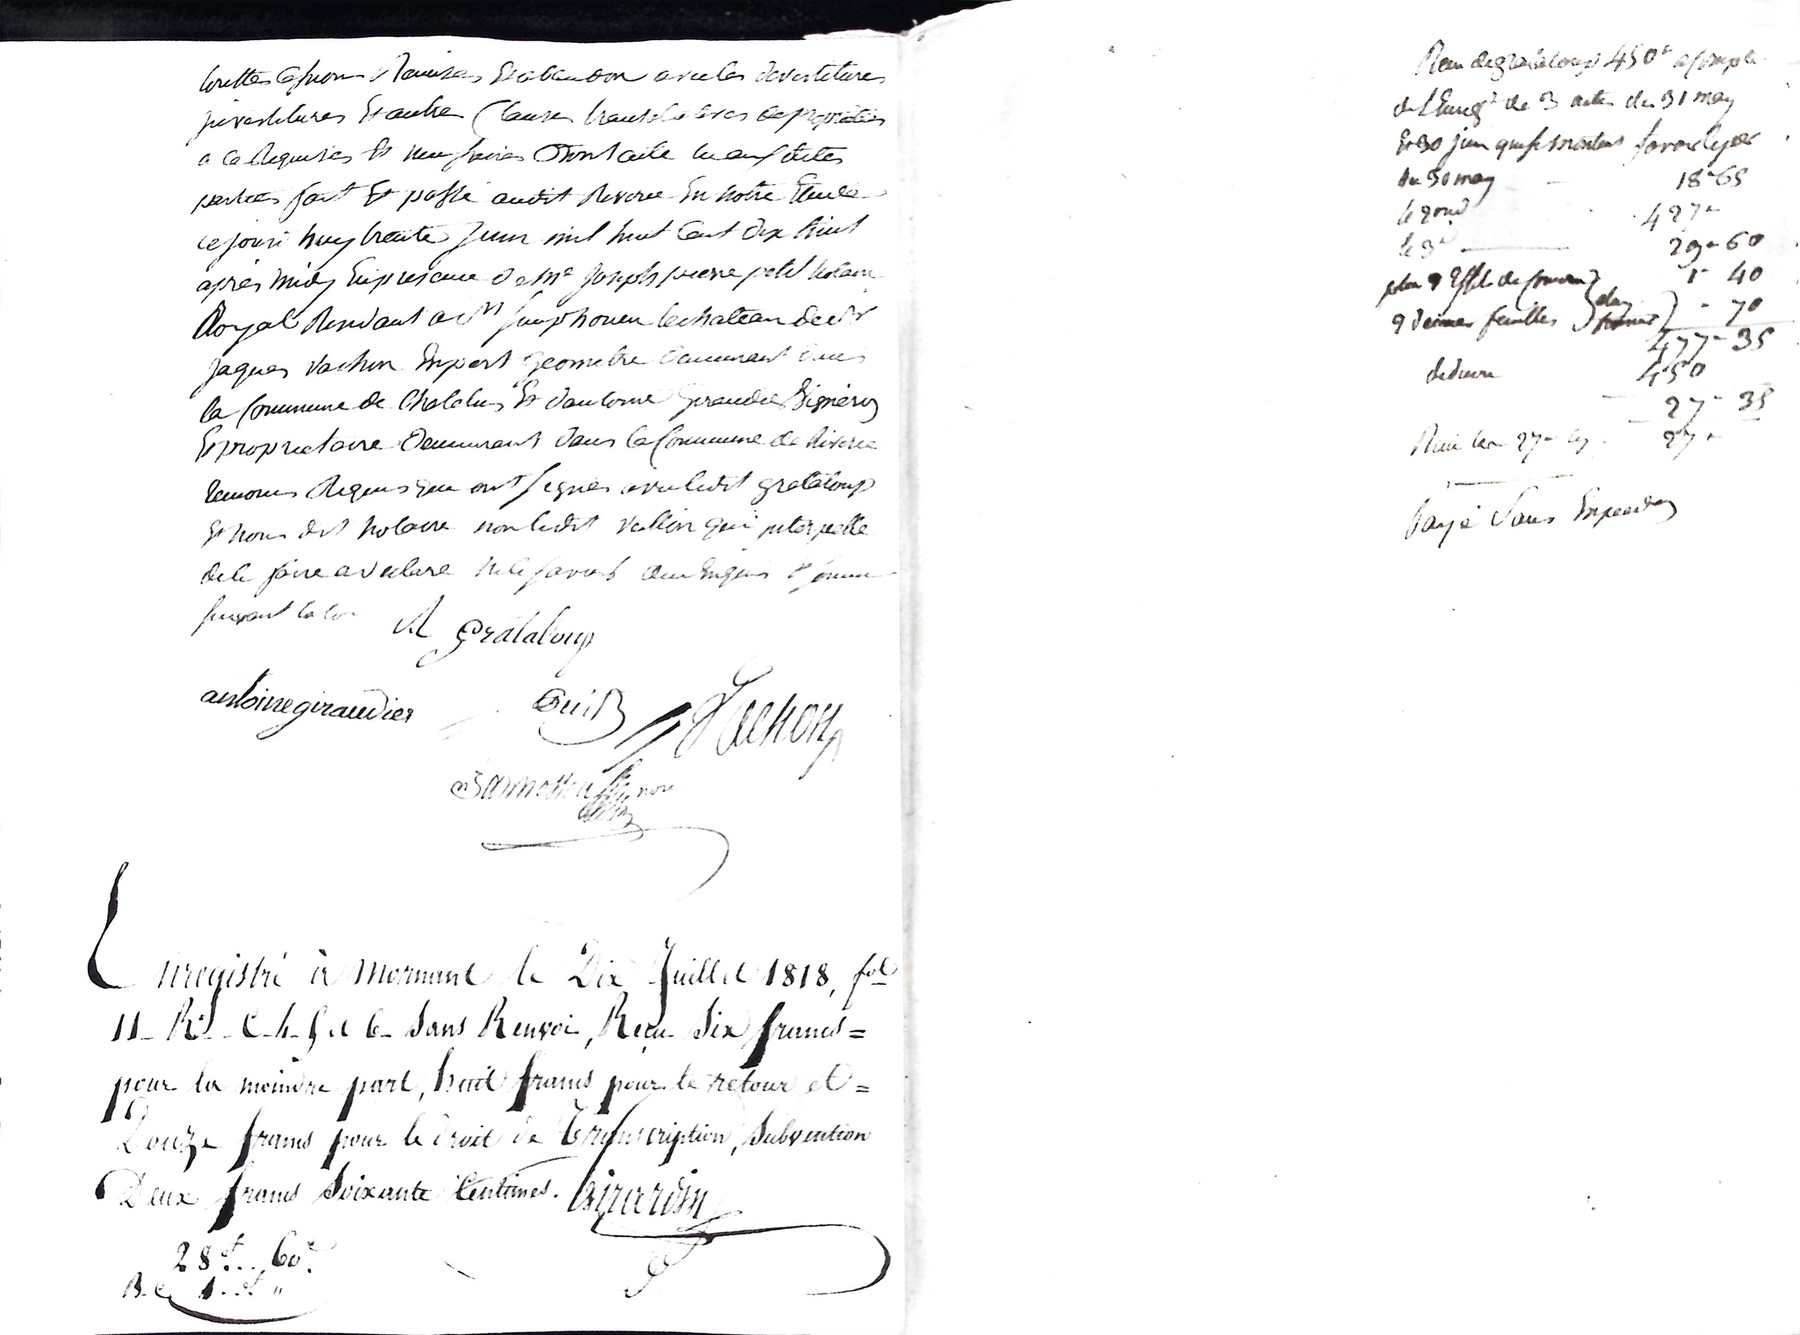 touttes cessions remises et abandon avec les devestitures
investitures et autres clauses translatives de propriétés
a ce requises et necessaires dont acte lu aux dites
parties fait et passé audit Riverie en notre Etude
ce jourd huy trente Juin mil huit cent dix huit
après midy En presence de Me Joseph pierre petit notaire
Royal Residant a St Simphorien le chateau de Sr
Jaques Vachon Expert géometre demeurant dans
la Commune de Chatelus Et d'antoine Giraudier
Et proprietaire demeurant dans la Commune de Riverie
temoins Requis qui ont signés avec ledit grataloup
Et nous dit notaire non ledit qui interpellé
de le faire a declaré ne le savoir
suivant la loi
grataloup
antoine giraudier Petit Vachon
Enregistré à Mornant le Dix Juillet 1818, fol
11 Ro C. 4. 5 et 6 Sans Renvoi, Reçu Six francs =
pour la moindre part, huit francs pour le retour et =
Douze francs pour le droit de Transcription, Subvention
Deux francs Soixante Centimes. Girardin
28 f. 60 c
1
Reçu de grataloup 450 a compte
de l'Enreg.t de 3 actes du 31 may
Et 30 juin qui se montent savoir
du 30 may 18 - 65
le 2ond 427 -
le 3e 29 - 60
1 - 40
9 feuilles - 70
477 - 35
450
27 - 35
27 -
Payé Sans